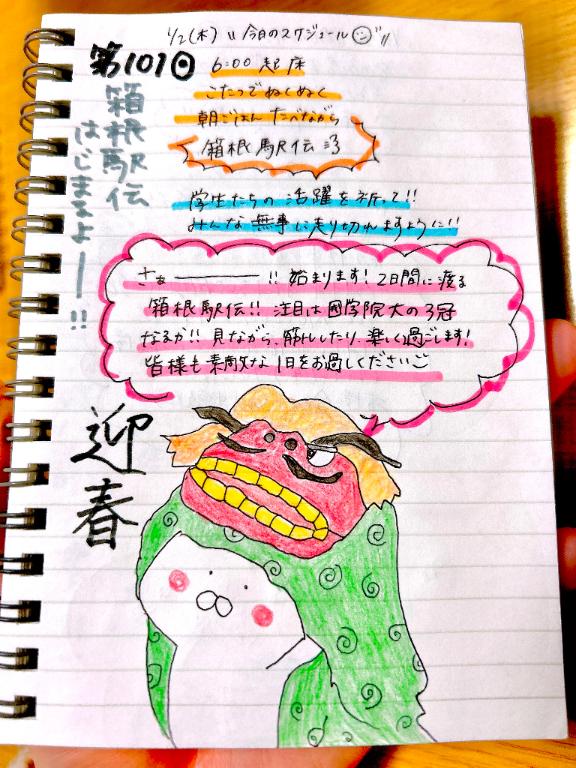 1/2(木) "今日のスケジュール"
第101回
箱根駅伝
はじまるよー!!
6:00 起床
こたつでぬくぬく
朝ごはん たべながら
箱根駅伝
学生たちの 活躍を祈って!!
みんな 無事に走り切れますように!!
さぁ―――!! 始まります! 2日間に渡る
箱根駅伝!! 注目は國学院大の3冠
なるか!! 見ながら、筋トレしたり、楽しく過ごします!
皆様も素敵な1日をお過しください
迎春